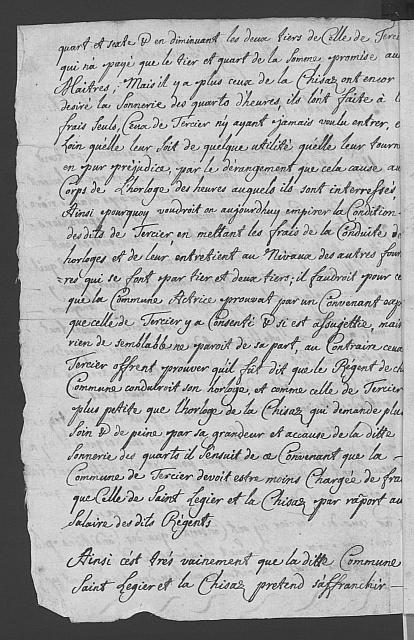 quart et sexte & en diminuant les deux tiers de Celle de Tercier
qui na payé que le tier et quart de la Somme promise au
Maitres; Mais il y a plus ceux de la Chisaz ont encor
desiré la Sonnerie des quarts d'heures, ils lont faite à
frais Seuls, Ceux de Tercier n'y ayant jamais voulu entrer, et
Loin quelle leur Soit de quelque utilité quelle leur tourne
en pur préjudice, par le dérangement que cela cause au
Corps de L'horloge des heures auquels ils sont interressés
Ainsi pourquoy voudroit on aujourdhuy empirer la Condition
des dits de Tercier en mettant les frais de la Conduite
horloges et de leur entretient au Niveaux des autres
res qui se font par tier et deux tiers; il faudroit pour ce
que la Commune Actrice prouvat par un Convenant
que celle de Tercier y a Consenti & si est assugettie, mais
rien de semblable ne paroit de sa part, au Contraire ceux
Tercier offrent prouver qu'il fut dit que le Regent de
Commune conduiroit son horloge, et comme celle de Tercier
plus petite que l'horloge de la Chisaz qui demande plus
Soin & de peine par sa grandeur et accause de la ditte
Sonnerie des quarts il sensuit de ce Convenant que la
Commune de Tercier devoit estre moins Chargée de frais
que Celle de Saint Legier et la Chisaz par raport au
Salaire des dits Regents
Ainsi c'est très vainement que la ditte Commune
Saint Legier et la Chisaz pretend s'affranchir